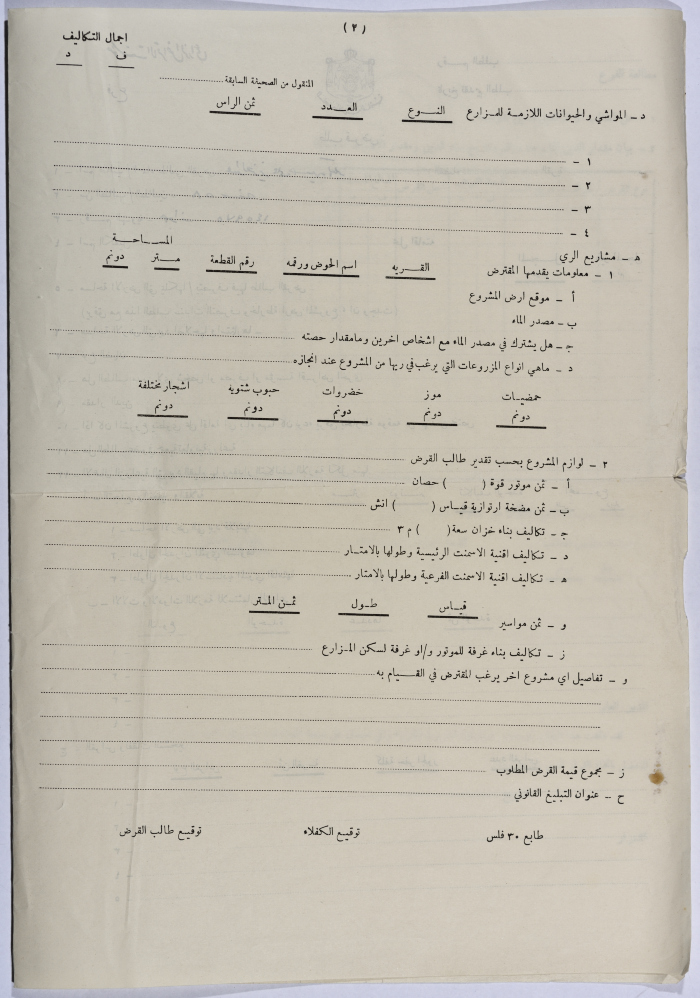 ( ٢ )
اجمال التكاليف
ف د
المنقول من الصحيفة السابقة
د - المواشي والحيوانات اللازمة للمزارع النوع العدد ثمن الراس
١ -
٢ -
٣ -
٤ -
ه - مشاريع الري
المساحة
١ - معلومات يقدمها المقترض القريه اسم الحوض ورقمه رقم القطعة متر دونم
أ - موقع ارض المشروع
ب - مصدر الماء
ج - هل يشترك في مصدر الماء مع اشخاص اخرين ومامقدار حصته
د - ماهي انواع المزروعات التي يرغب في ريها من المشروع عند انجازه
حمضيات موز خضروات حبوب شتويه اشجار مختلفة
دونم دونم دونم دونم دونم
٢ - لوازم المشروع بحسب تقدير طالب القرض
أ - ثمن موتور قوة ( ) حصان
ب - ثمن مضخة ارتوازية قياس ( ) انش
ج - تكاليف بناء خزان سعة ( ) م ٣
د - تكاليف اقنية الاسمنت الرئيسية وطولها بالامتار
ه - تكاليف اقنية الاسمنت الفرعية وطولها بالامتار
قياس طول ثمن المتر
و - ثمن مواسير
ز - تكاليف بناء غرفة للموتور و/او غرفة لسكن المزارع
و - تفاصيل اي مشروع اخر يرغب المقترض في القيام به
ز - مجموع قيمة القرض المطلوب
ح - عنوان التبليغ القانوني
طابع ٣٠ فلس توقيع الكفلاء توقيع طالب القرض